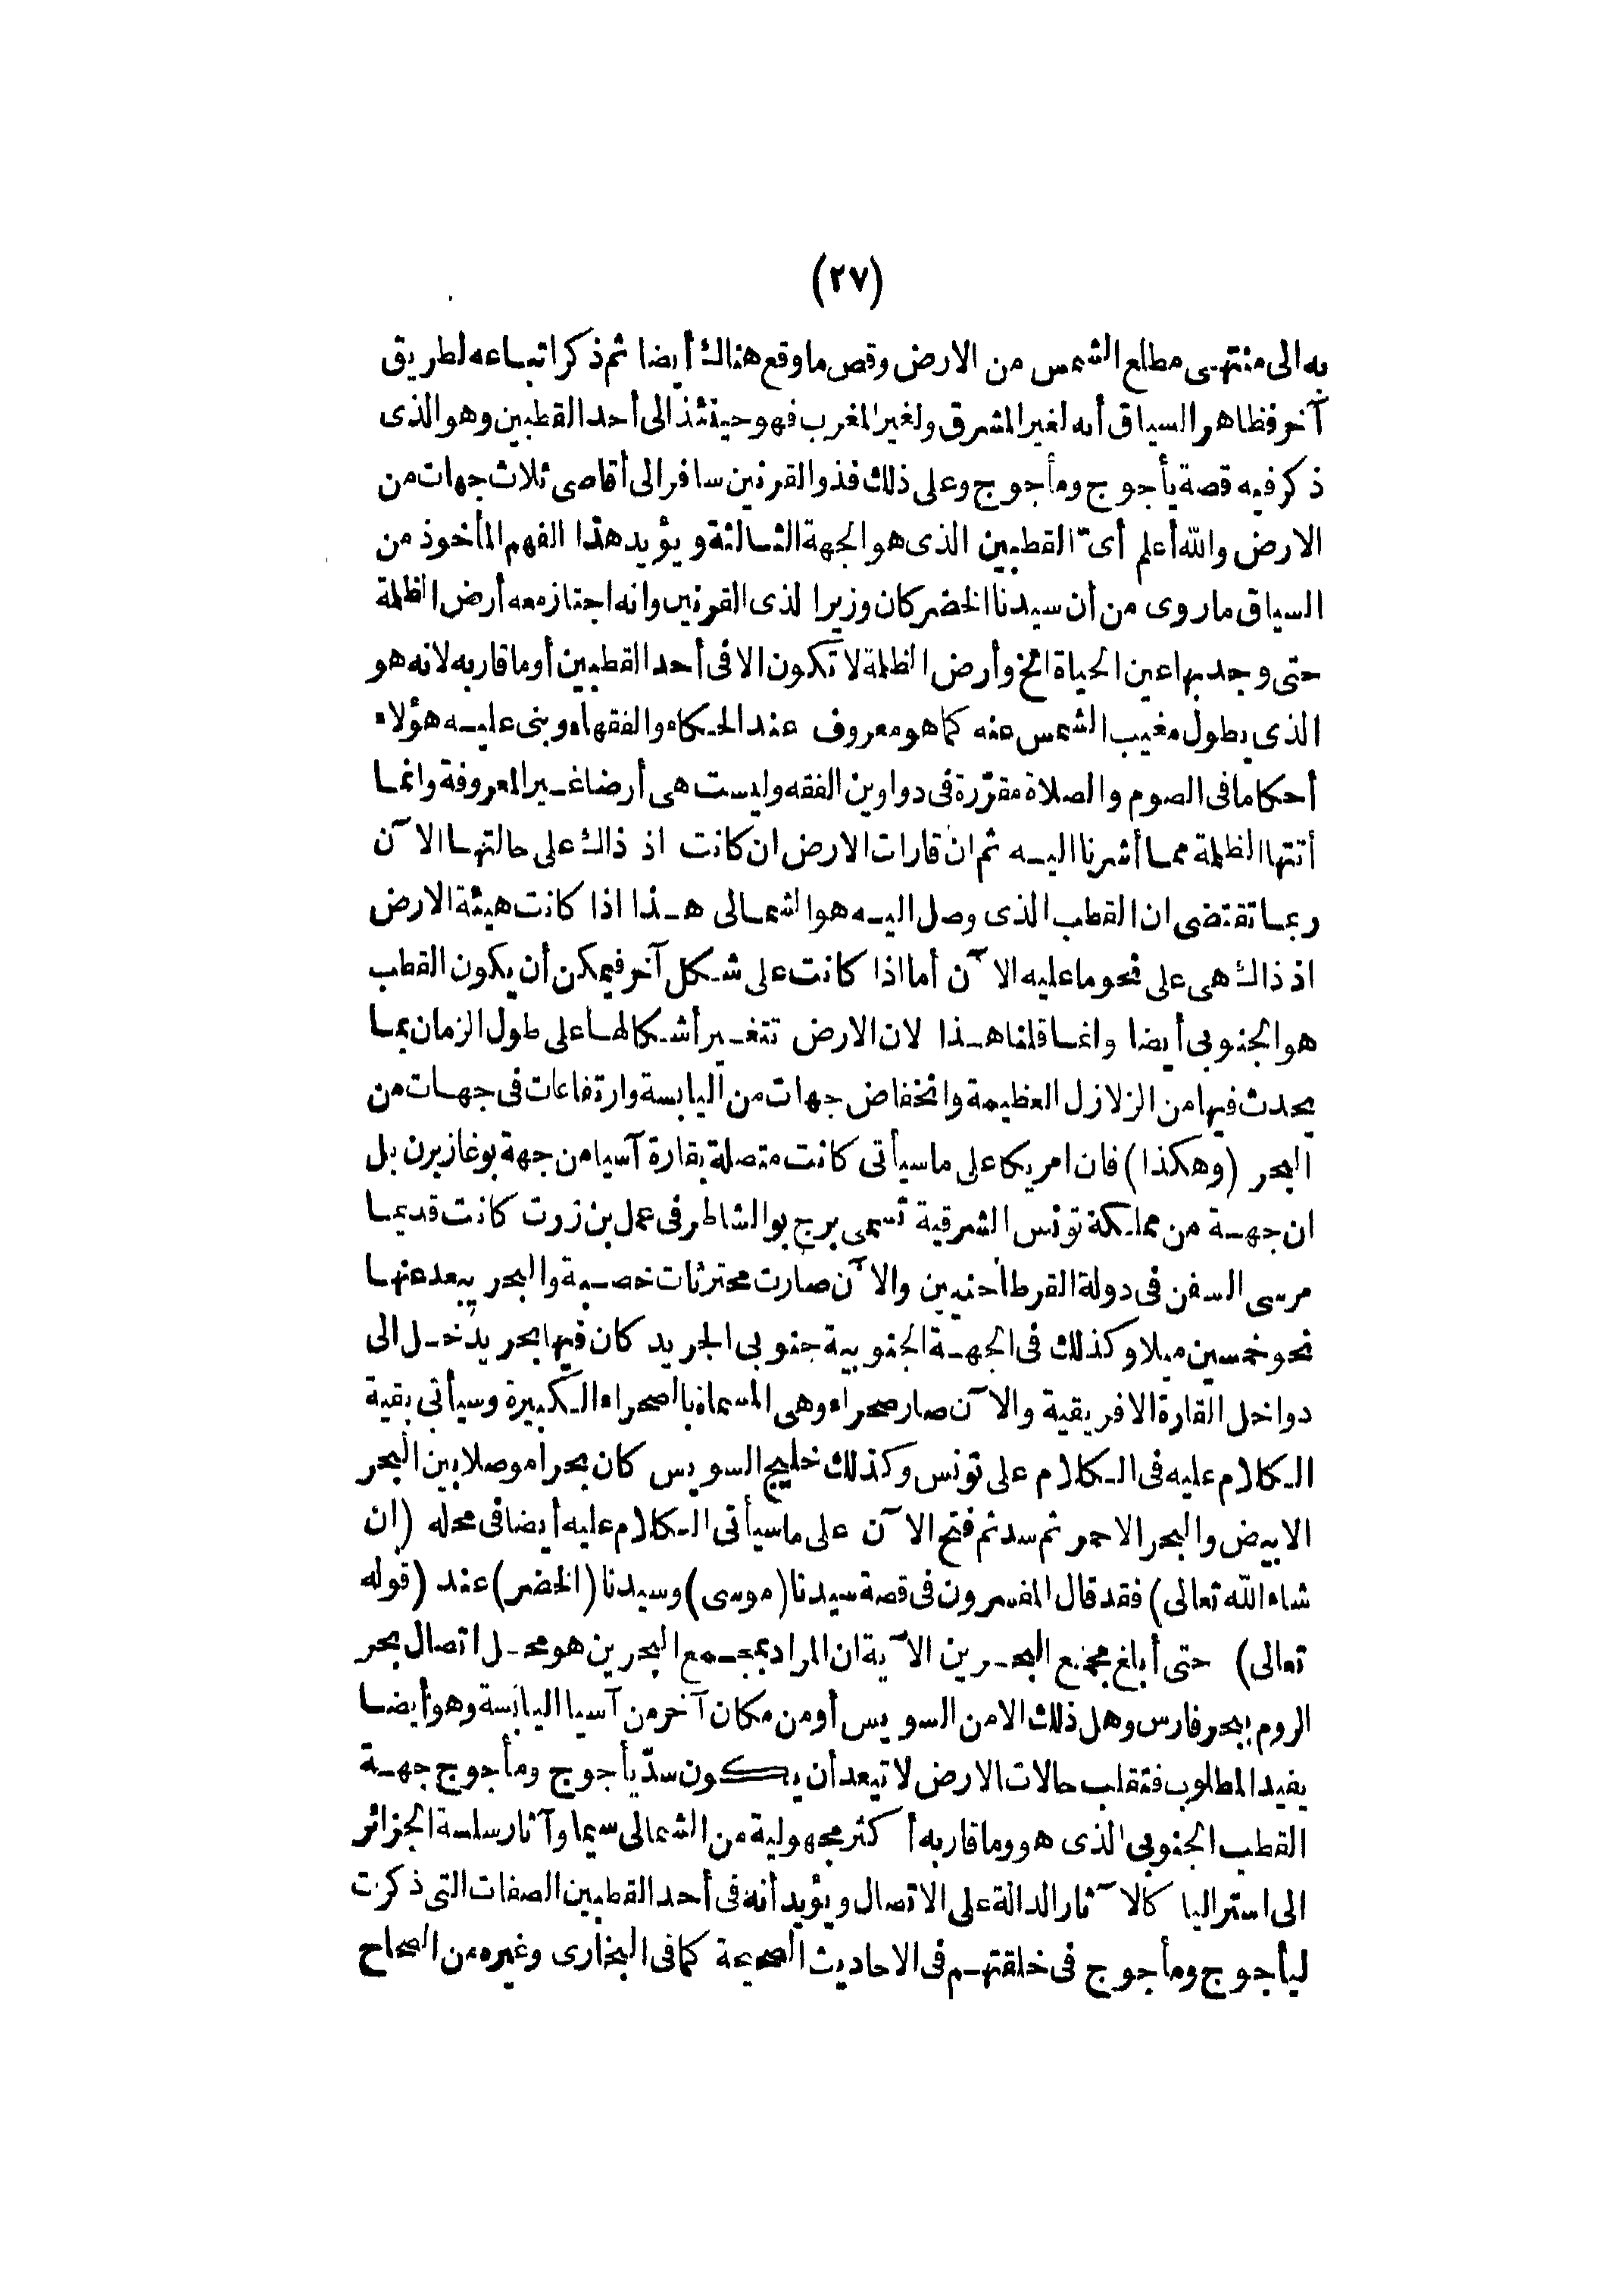 (٢٧)
به الى منتهى مطلع الشمس من الارض وقص ما وقع هناك أيضا ثم ذكر اتباعه لطريق
آخر فظاهر السياق أنه لغير المشرق ولغير المغرب فهو حينئذ الى أحد القطبين وهو الذى
ذكر فيه قصة يأجوج ومأجوج وعلى ذلك فذو القرنين سافر الى أقاصى ثلاث جهات من
الارض والله أعلم أىّ القطبين الذى هو الجهة الثالثة ويؤيد هذا الفهم المأخوذ من
السياق ما روى من أن سيدنا الخضر كان وزيرا لذى القرنين وانه اجتاز معه أرض الظلمة
حتى وجد بها عين الحياة الخ وأرض الظلمة لا تكون الا فى أحد القطبين أو ما قاربه لانه هو
الذى يطول مغيب الشمس عنه كما هو معروف عند الحكماء والفقهاء وبنى عليه هؤلاء
أحكاما فى الصوم والصلاة مقرّرة فى دواوين الفقه وليست هى أرضا غير المعروفة وانما
أتتها الظلمة مما أشرنا اليه ثم ان قارات الارض ان كانت اذ ذاك على حالتها الآن
ربما تقتضى ان القطب الذى وصل اليه هو الشمالى هذا اذا كانت هيئة الارض
اذ ذاك هى على نحو ما عليه الآن أما اذا كانت على شكل آخر فيمكن أن يكون القطب
هو الجنوبى أيضا وانما قلنا هذا لان الارض تتغير أشكالها على طول الزمان بما
يحدث فيها من الزلازل العظيمة وانخفاض جهات من اليابسة وارتفاعات فى جهات من
البحر (وهكذا) فان امريكا على ما سيأتى كانت متصلة بقارة آسيا من جهة بوغاز برن بل
ان جهة من مملكة تونس الشرقية تسمى برج بو الشاطر فى عمل بن زرت كانت قديما
مرسى السفن فى دولة القرطاجنيين والآن صارت محترثات خصبة والبحر يبعد عنها
نحو خمسين ميلا وكذلك فى الجهة الجنوبية جنوبى الجريد كان فيها بحر يدخل الى
دواخل القارة الافريقية والآن صار صحراء وهى المسماة بالصحراء الكبيرة وسيأتى بقية
الكلام عليه فى الكلام على تونس وكذلك خليج السويس كان بحرا موصلا بين البحر
الابيض والبحر الاحمر ثم سد ثم فتح الآن على ما سيأتى الكلام عليه أيضا فى محله (ان
شاء الله تعالى) فقد قال المفسرون فى قصة سيدنا (موسى) وسيدنا (الخضر) عند (قوله
تعالى) حتى أبلغ مجمع البحرين الآية ان المراد بمجمع البحرين هو محل اتصال بحر
الروم ببحر فارس وهل ذلك الا من السويس أو من مكان آخر من آسيا اليابسة وهو أيضا
يفيد المطلوب فتقلب حالات الارض لا تبعد أن يكون سدّ يأجوج ومأجوج جهة
القطب الجنوبى الذى هو وما قاربه أكثر مجهولية من الشمالى سيما وآثار سلسة الجزائر
الى استراليا كالآثار الدالة على الاتصال ويؤيد أنه فى أحد القطبين الصفات التى ذكرت
ليأجوج ومأجوج فى خلقتهم فى الاحاديث الصحيحة كما فى البخارى وغيره من الصحاح